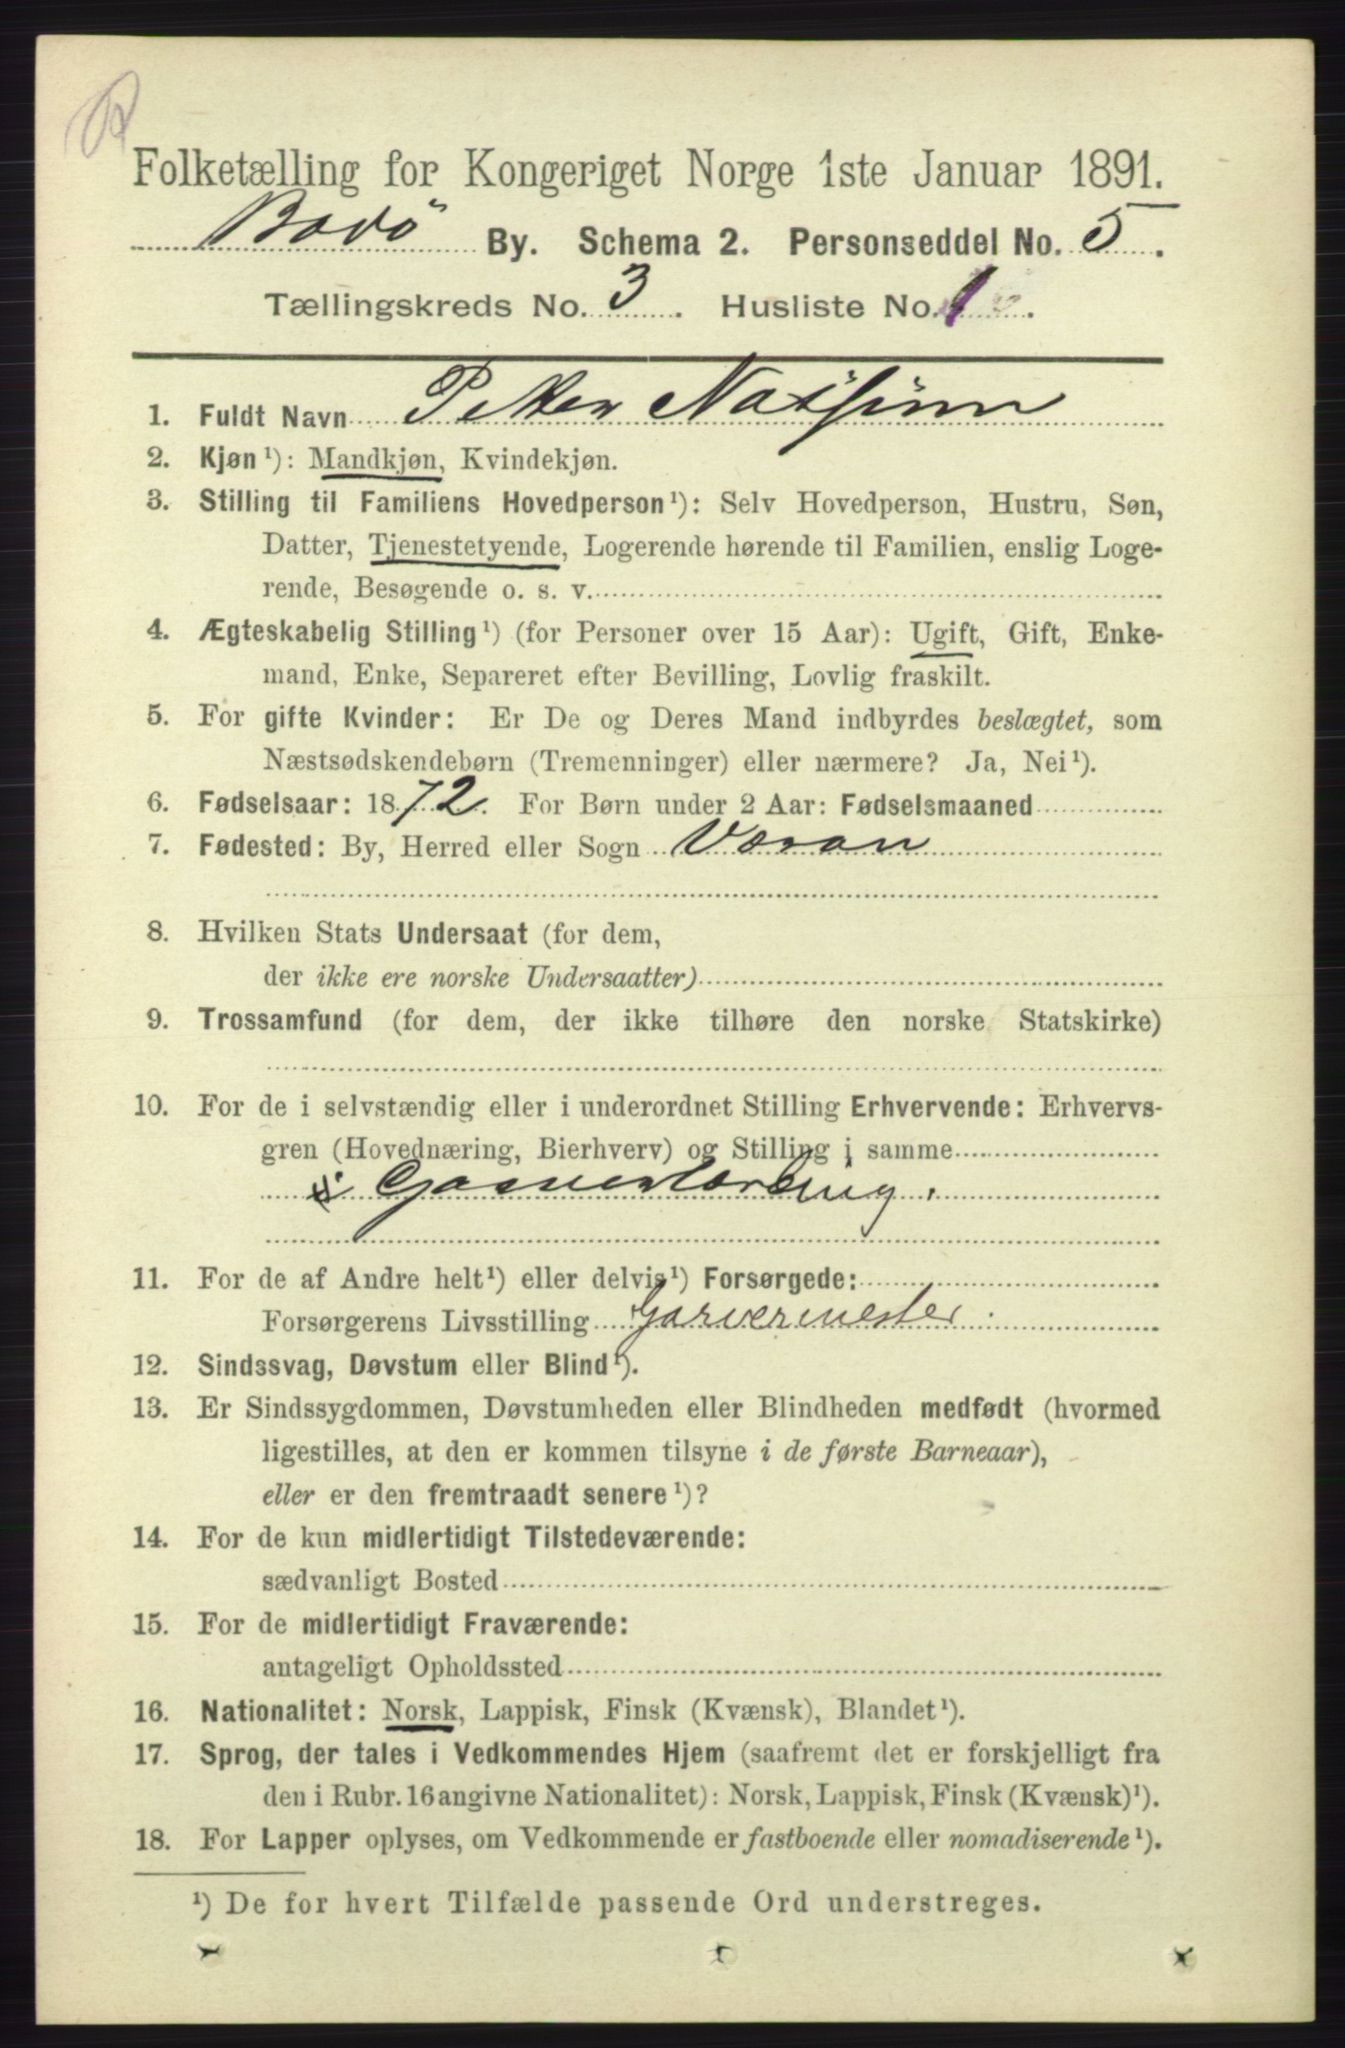 Folketælling for Kongeriget Norge 1ste Januar 1891.
Bodø By. Schema 2. Personseddel No. 5.
Tællingskreds No. 3. Husliste No. 1.
1. Fuldt Navn Petter
2. Kjøn¹): Mandkjøn, Kvindekjøn.
3. Stilling til Familiens Hovedperson¹): Selv Hovedperson, Hustru, Søn,
Datter, Tjenestetyende, Logerende hørende til Familien, enslig Loge-
rende, Besøgende o. s. v.
4. Ægteskabelig Stilling¹) (for Personer over 15 Aar): Ugift, Gift, Enke-
mand, Enke, Separeret efter Bevilling, Lovlig fraskilt.
5. For gifte Kvinder: Er De og Deres Mand indbyrdes beslægtet, som
Næstsødskendebørn (Tremenninger) eller nærmere? Ja, Nei¹).
6. Fødselsaar: 1872. For Børn under 2 Aar: Fødselsmaaned
7. Fødested: By, Herred eller Sogn
8. Hvilken Stats Undersaat (for dem,
der ikke ere norske Undersaatter)
9. Trossamfund (for dem, der ikke tilhøre den norske Statskirke)
10. For de i selvstændig eller i underordnet Stilling Erhvervende: Erhvervs-
gren (Hovednæring, Bierhverv) og Stilling i samme
Garverlærling.
11. For de af Andre helt¹) eller delvis¹) Forsørgede:
Forsørgerens Livsstilling Garvermester.
12. Sindssvag, Døvstum eller Blind¹).
13. Er Sindssygdommen, Døvstumheden eller Blindheden medfødt (hvormed
ligestilles, at den er kommen tilsyne i de første Barneaar),
eller er den fremtraadt senere¹)?
14. For de kun midlertidigt Tilstedeværende:
sædvanligt Bosted
15. For de midlertidigt Fraværende:
antageligt Opholdssted
16. Nationalitet: Norsk, Lappisk, Finsk (Kvænsk), Blandet¹).
17. Sprog, der tales i Vedkommendes Hjem (saafremt det er forskjelligt fra
den i Rubr. 16 angivne Nationalitet): Norsk, Lappisk, Finsk (Kvænsk)¹).
18. For Lapper oplyses, om Vedkommende er fastboende eller nomadiserende¹).
¹) De for hvert Tilfælde passende Ord understreges.